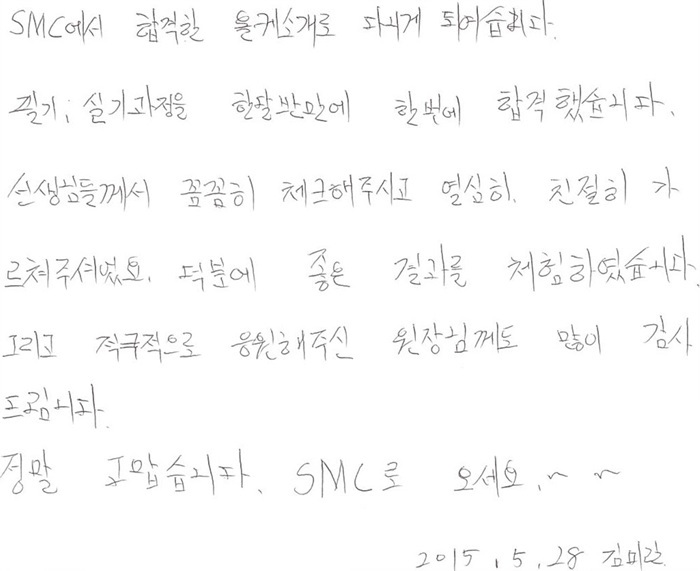 SMC에서 합격한 율커소개로 다니게 되어습니다.
필기, 실기과정을 한달반만에 한번에 합격했습니다.
선생님들께서 꼼꼼히 체크해주시고 열심히, 친절히 가
르쳐주셔었요. 덕분에 좋은 결과를 체험하였습니다.
그리고 적극적으로 응원해주신 원장님께도 많이 감사
드립니다.
정말 고맙습니다. SMC로 오세요.~ ~
2015, 5, 28 김미란